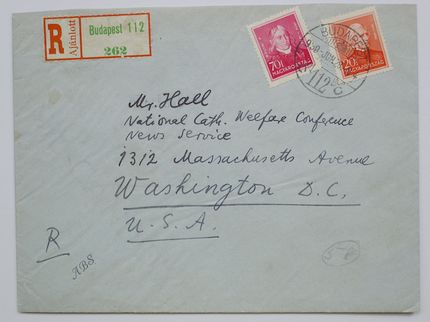 R
Ajánlott
Budapest 112
262
70f
MAGYARORSZÁG
20f
MAGYARORSZÁG
BUDAPEST
112
Mr. Hall
National Cath. Welfare Conference
News Service
1312 Massachusetts Avenue
Washington D.C.
U.S.A.
R
ABS